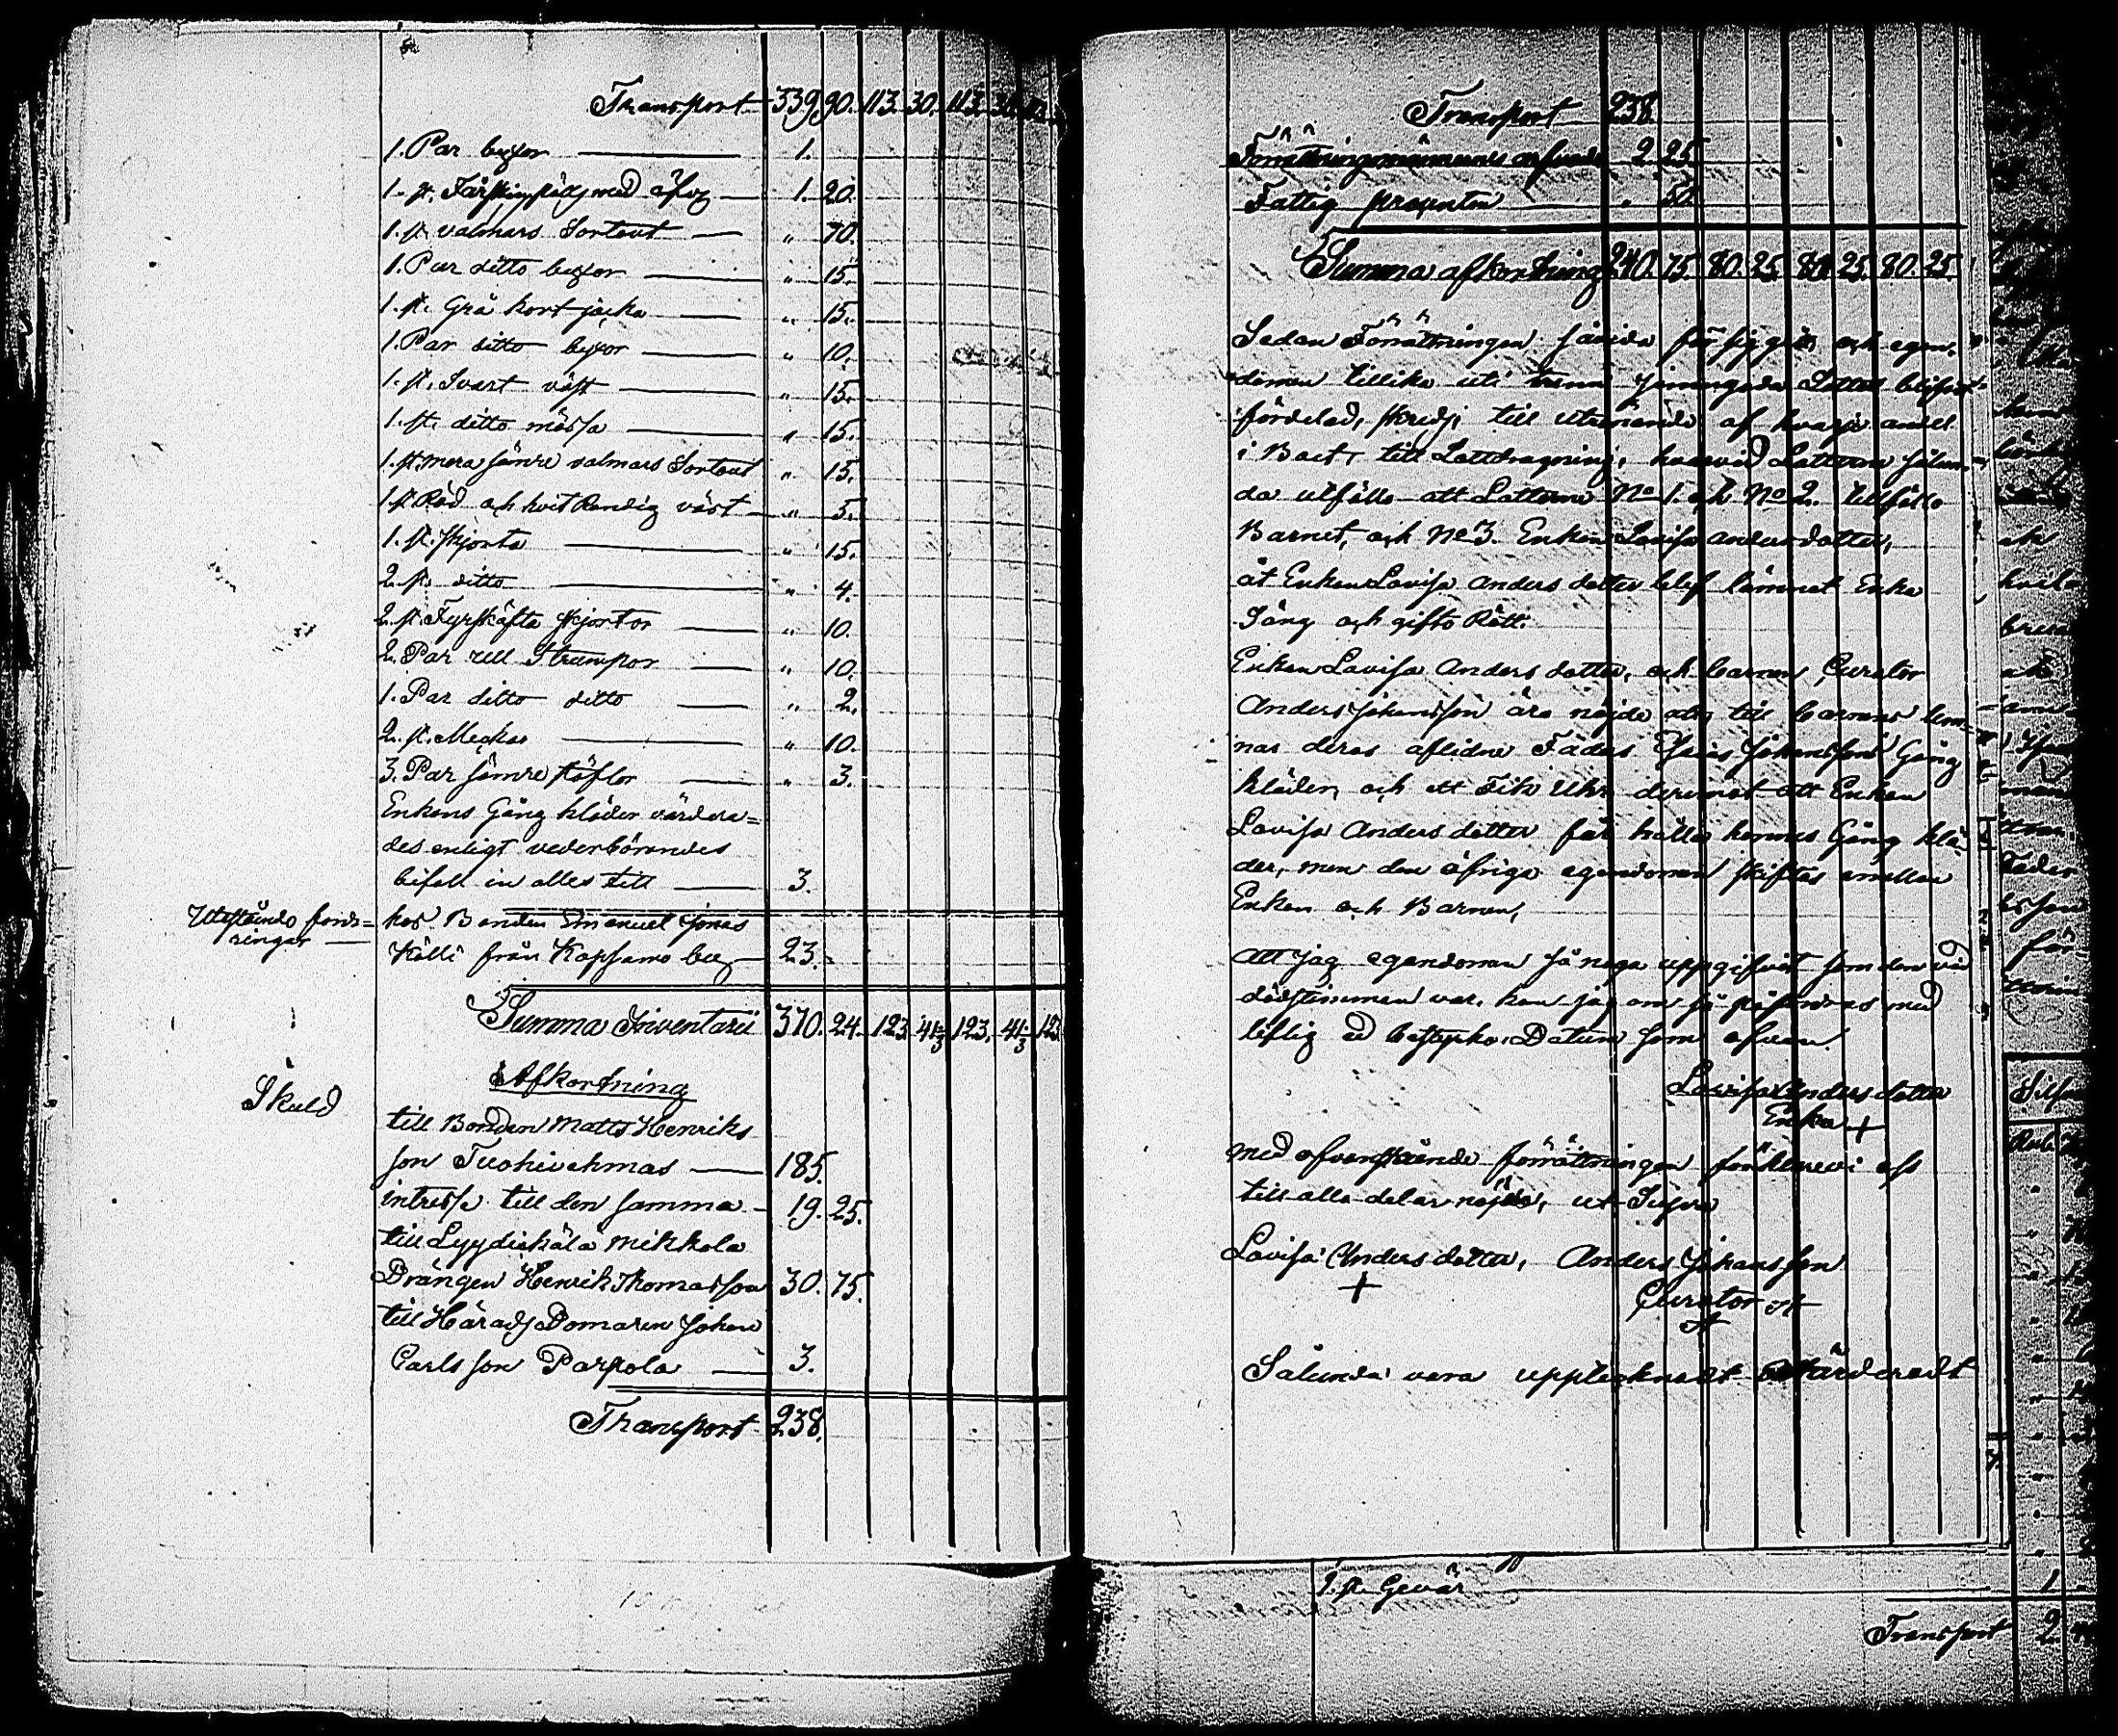 Transport 339. 90. 113. 30. 113. 30. 113.
1. Par byxor 1.
1. st. Fårskins päls med öfvg 1. 20.
1. st. valmars Sortout " 70.
1. Par ditto byxor " 15.
1. st. Grå kort jacka " 15.
1. Par ditto byxor " 10.
1. st. Svart väst " 15.
1. st. ditto mössa " 15.
1. st. mera sämre valmars Sortout " 15.
1 st Röd och hvit Randig väst " 5.
1. st. skjorta " 15.
2. st. ditto " 4.
2. st. Fyrskäfta skjortor " 10.
2. Par ull Strumpor " 10.
1. Par ditto ditto " 2.
2. st. Meckor " 10.
3. Par sämre stöflor " 3.
Enkans Gång kläder värdera=
des enligt vederbörandes
bifall in alles till 3.
Utestående ford= hos Bonden Emanuel Jonas
ringar Källi från Kapsamo by 23.
Summa Inventarii 370. 24. 123. 41⅓ 123. 41⅓ 123
Afkortning
Skuld
till Bonden Matts Henriks
son Tuohivehmas 185.
intresse till den samma 19. 25.
till Lyydickälä Mikkola
Drängen Henrik Thomasson 30. 75.
till Härads Domaren Johan
Carlsson Parpola 3.
Transport 238.
Transport 238.
Förrättningsmännernes arfvode 2 25
Fattig procenten " 50
Summa afkortning 240. 75. 80. 25. 80. 25. 80. 25.
Sedan Förrättningen såvida försiggått och egen=
domen tillika uti trenne jemngoda Lotter blifvit
fördelad, skreds till utrönande af hvarje andel
i Boet, till Lottdragning, hvarvid Lotterne sålun=
da utfälle att Lotterne No 1. och No 2. tillfälle
Barnet, och No 3. Enkan Lovisa Andersdotter,
åt Enkan Lovisa Anders dotter blef lämnat Enke
Säng och gifto Rätt.
Enkan Lovisa Anders dotter, och barnens Curator
Anders Johansson äro nöjde att till barnens lem=
nas deras aflidne Faders Elias Johansson Gång
kläder, och ett Fik Uhr deremot att Enkan
Lovisa Anders dotter får hålla hennes Gång klä=
der, men den öfriga egendomen skiftes emellan
Enkan och Barnen,
Att jag egendomen så noga uppgifvit som den vid
dödstimman var, kan jag om så påfordras med
liflig ed bestyrka. Datum som ofvan.
Lovisa Anders dotter
Enka +
Med ofvanstående förrättningen förklara vi oss
till alla delar nöjde, ut Supra
Lovisa Anders dotter, Anders Johansson
+ Curator
Sålunda vara upptecknadt Värderadt
1. st. Gevär 1.
Transport 2